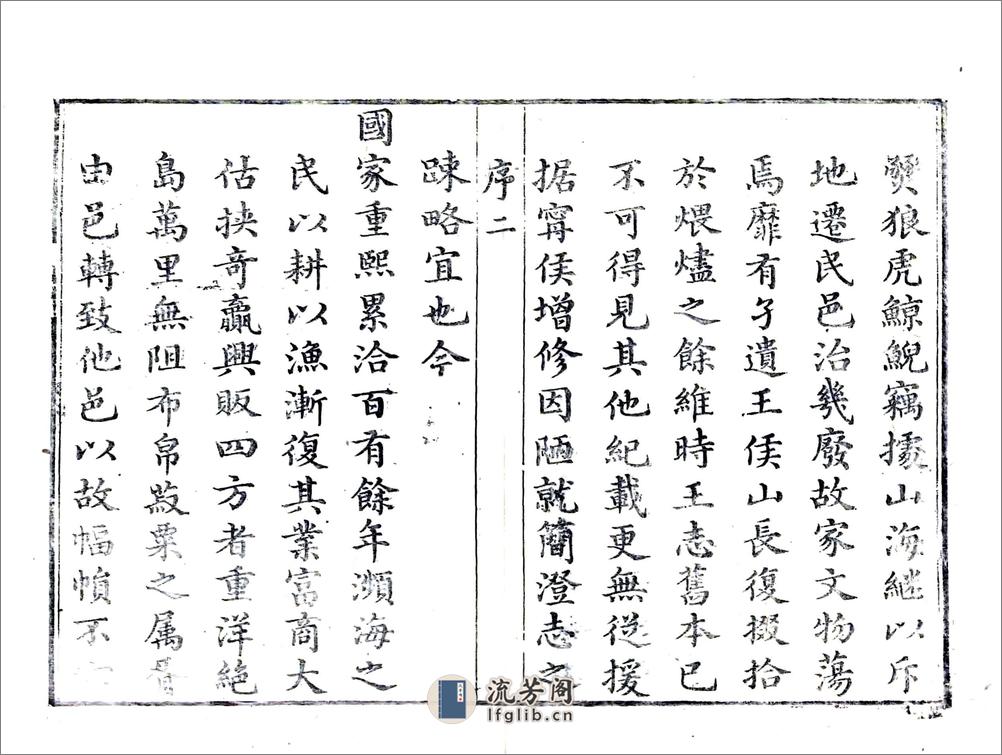 狼虎鯨鯢竊據山海繼以斥
地遷民邑治幾廢故家文物蕩
焉靡有孑遺王侯山長復掇拾
於煨燼之餘維時王志舊本已
不可得見其他紀載更無從援
据甯侯增修因陋就簡澄志之
序二
疎略宜也今
國家重熙累洽百有餘年瀕海之
民以耕以漁漸復其業富商大
估挾奇贏興販四方者重洋絕
島萬里無阻布帛菽粟之属
由邑轉致他邑以故幅幀不
流芳阁
lfglib.cn